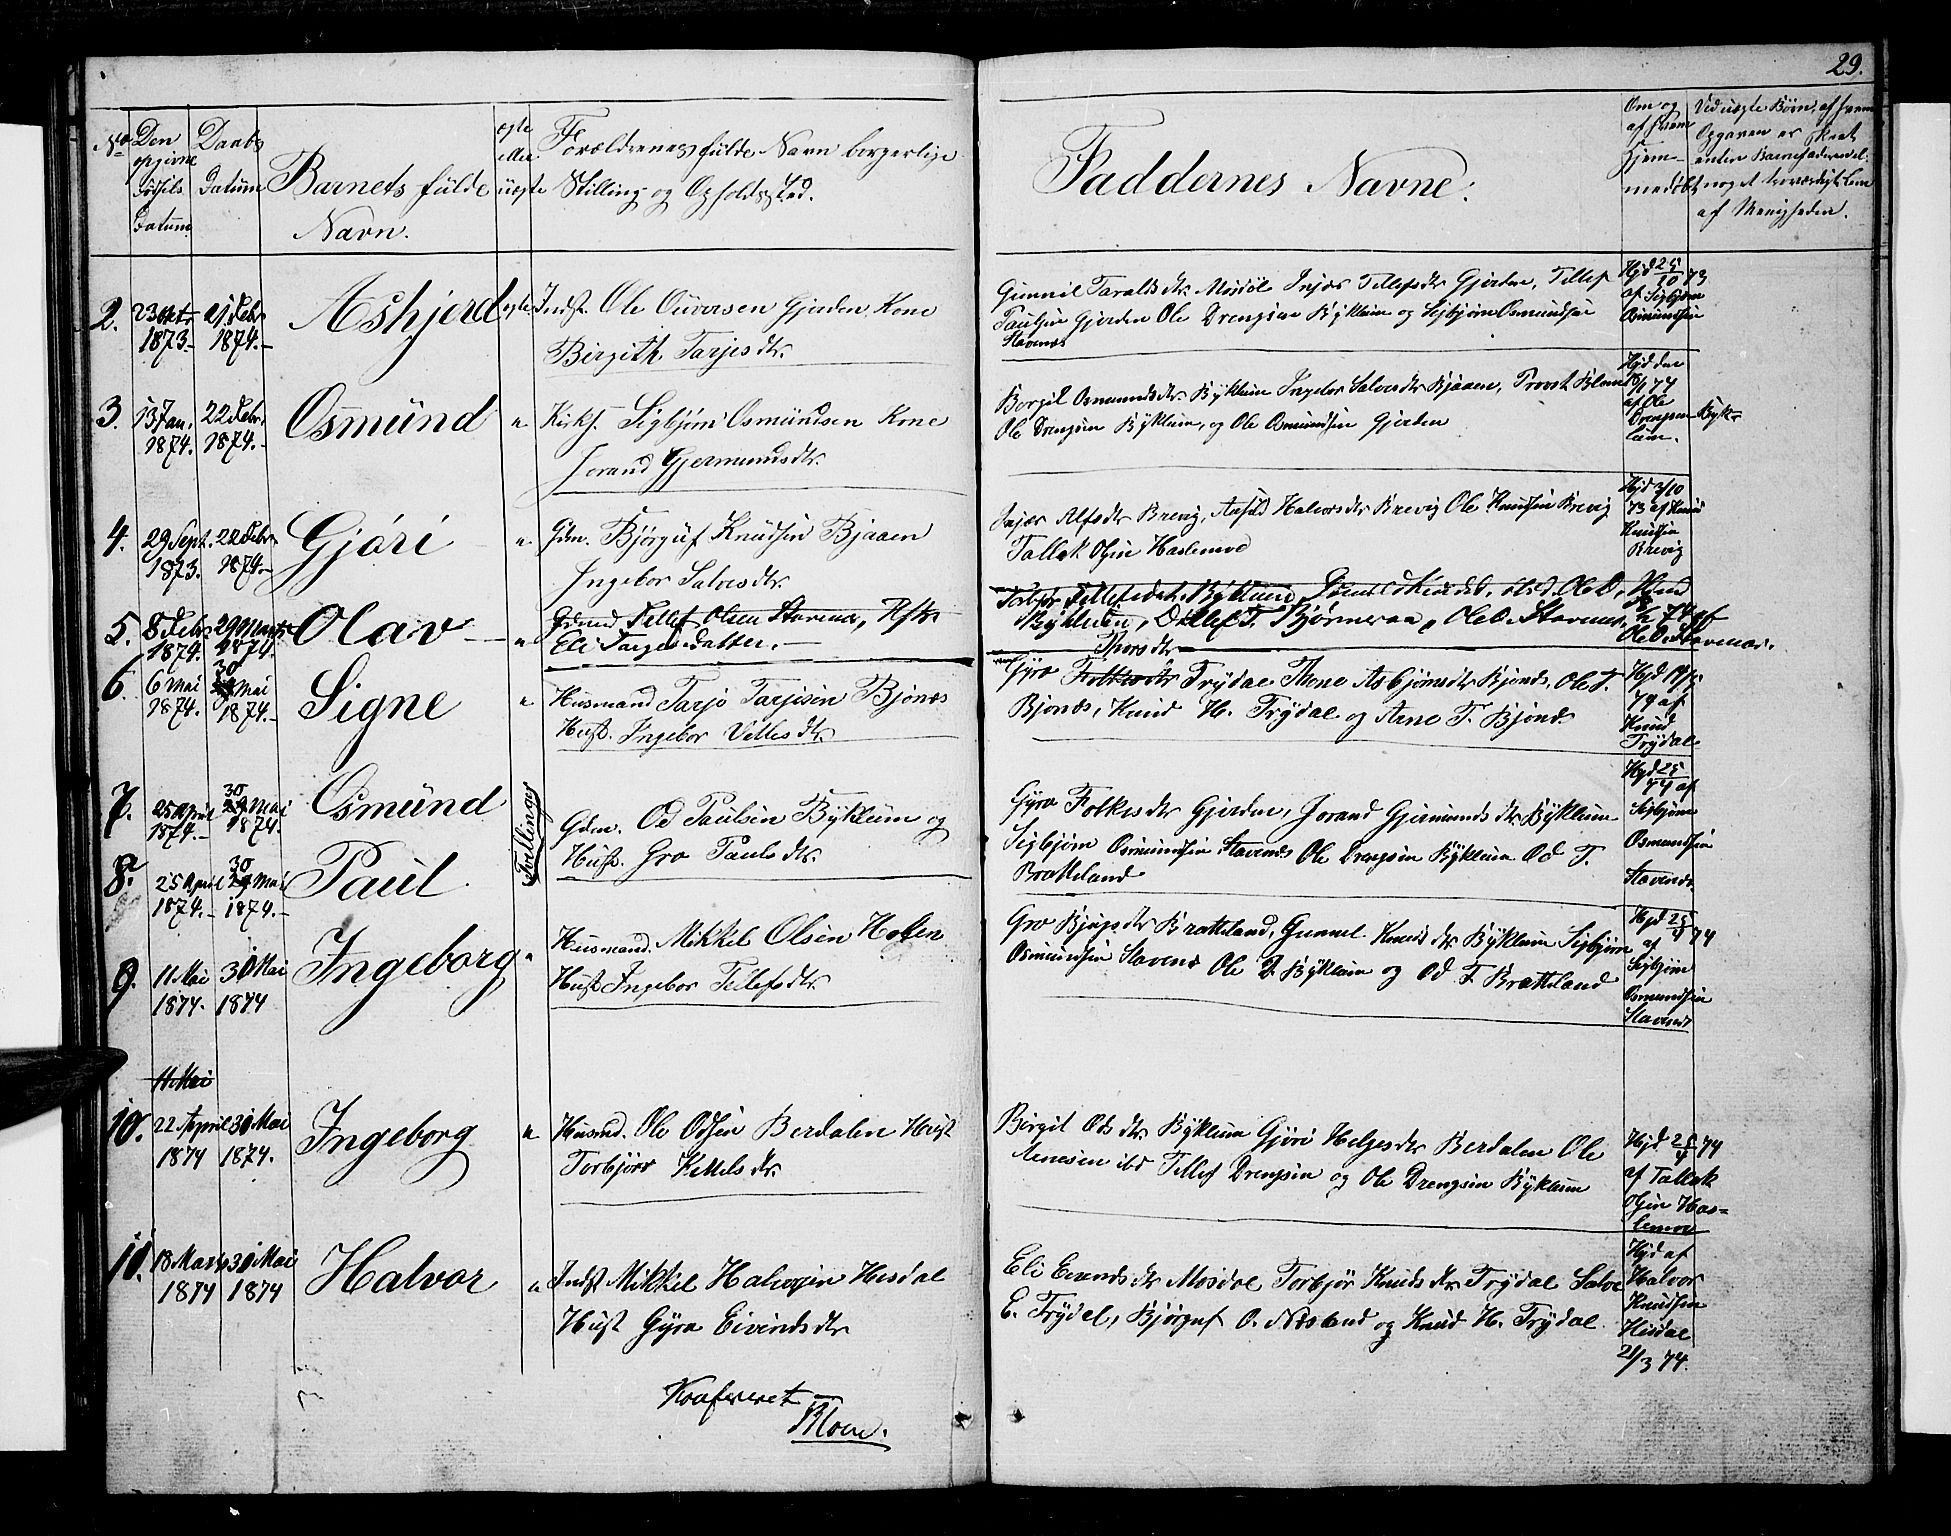 29.
No
Den opgivne Fødsels Datum
Daabs Datum
Barnets fulde Navn.
ægte eller uægte
Forældrenes fulde Navn borgerlige
Stilling og Opholdssted.
Faddernes Navne:
Om og af hvem hjemmedøbt
Ved uægte Børn, af hvem Opgaven er skeet enten Barnefaderen el. noget troværdigt Lem af Menigheden.
2. 23 Octr 1873.- 21 Febr 1874.- Ashjerd ægte Indst. Ole Gjerden, Kone
Birgith Tarjesdtr.
Gunnil Taraldsdtr. Mosdøl Injær Tellefsdtr Gjerden, Tellef
Paulsen Gjerden Ole Drengsen Bÿklum og Sigbjørn Osmundsen
Stavenes
Hjd 25/10 73
af Sigbjørn
Osmundsen
3. 13 Jan. 1874. 22 Febr. 1874.- Osmünd " Kirks. Sigbjørn Osmündsen Kone
Jorand Gjermundsdtr.
Bergit Osmundsdtr Bÿklum Ingebor Salvesdtr Bjaaen, Provst Blom
Ole Drengsen Bÿklum, og Ole Osmundsen Gjerden
Hjd den
/1 74
af Ole
Drengsen Byk=
lum.
4. 29 Sept. 1873. 22 Febr. 1874.- Gjøri " Gdm. Bjørguf Knudsen Bjaaen
Ingebor Salvesdtr.
Injær Alfsdtr Brevig, Halvorsdtr Brevig Ole Knudsen Brevig
Tallak Olsen Haslemoe
Hjd 3/10
73 af Knud
Knudsen
Brevig
5. 8 Febr 1874. 29 Marts 1874. Olav " Gdmd Tellef Olsen Stavenes,
Eli Targesdatter.-
Torbjør Tellefsdatr. Bÿklum,
Bÿklum, Tellef T. Bjørneraa, Ole D. Stavenes
74 af
Ole D. Stavenes.
6. 6 Mai 1874. 30 Mai 1874.- Signe " Husmand Tarje Tarjesen Bjønes
Hust. Ingebor Villesdtr.
Thorsdtr
Gÿro Folkesdtr Trÿdal Thone Asbjørnsdtr Bjønes, Ole T.
Bjønes, Knud H. Trÿdal og Arne T. Bjønes
Hjd
74 af
Knud
Trÿdal
7. 25 April 1874.- 30 Mai 1874. Osmünd
Tvillinger
Gdm. Od Paulsen Bÿklum og
Hust. Gro Paulsdtr.
Gÿro Folkesdtr Gjerden, Jorand Gjermundsdtr Bÿklum
Sigbjørn Osmundsen Stavenes Ole Drengsen Bÿklum Od T.
Brotteland
Hjd 25/4 74 af
Sigbjørn
Osmundsen
Stavenes
8. 25 April 1874.- 30 Mai 1874.- Paul
9. 11 Mai 1874. 30 Mai 1874 Ingeborg " Husmand. Mikkel Olsen Hoslen
Hust Ingebor Tellefsdtr.
Gro Bjugsdtr Bratteland, Gunnel Knudsdtr Bÿklum Sigbjørn
Osmundsen Stavenes Ole D. Bÿklum og Od T. Bratteland
Hjd 25/4 74
af
Sigbjørn
Osmundsen
Stavenes
11 Mai
10. 22 April 1874 30 Mai 1874. Ingeborg " Husmd. Ole Odsen Berdalen Hust
Torbjørs Kettelsdtr.
Birgit Odsdtr. Bÿklum Gjøri Helgesdtr Berdalen Ole
Arnesen ibd Tellef Drengsen og Ole Drengsen Bÿklum
Hjd 25/4 74
af Tallak
Olsen Has=
lemoe
11. 18 Marts 1874 30 Mai 1874 Halvor " Indst Mikkel Halvorsen Hisdal
Hust Gÿro Eivindsdtr
Eli Evendsdtr Mosdøl Torbjør Knudsdtr Trÿdal Salve
E. Trÿdal, Bjørguf O. Næsland og Knud H. Trÿdal
Hjd af
Halvor
Knudsen
Hisdal
21/3 74.
Konfereret
Blom.